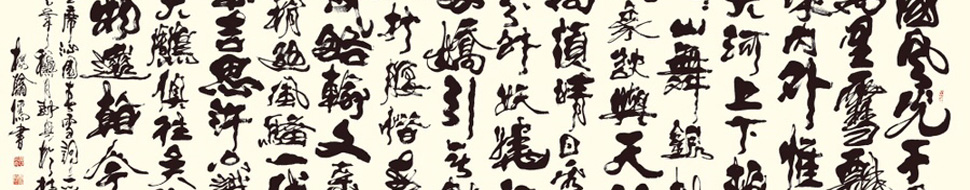 國風光千
萬里雪飄
內外惟
大河上下
山舞銀
象欲與天
須晴日看
分外妖嬈
多嬌引無
折腰惜秦
武略輸文采
稍遜風騷一代
吉思汗只識
大鵰俱往矣
物還看今
主席沁園春雪詞
書